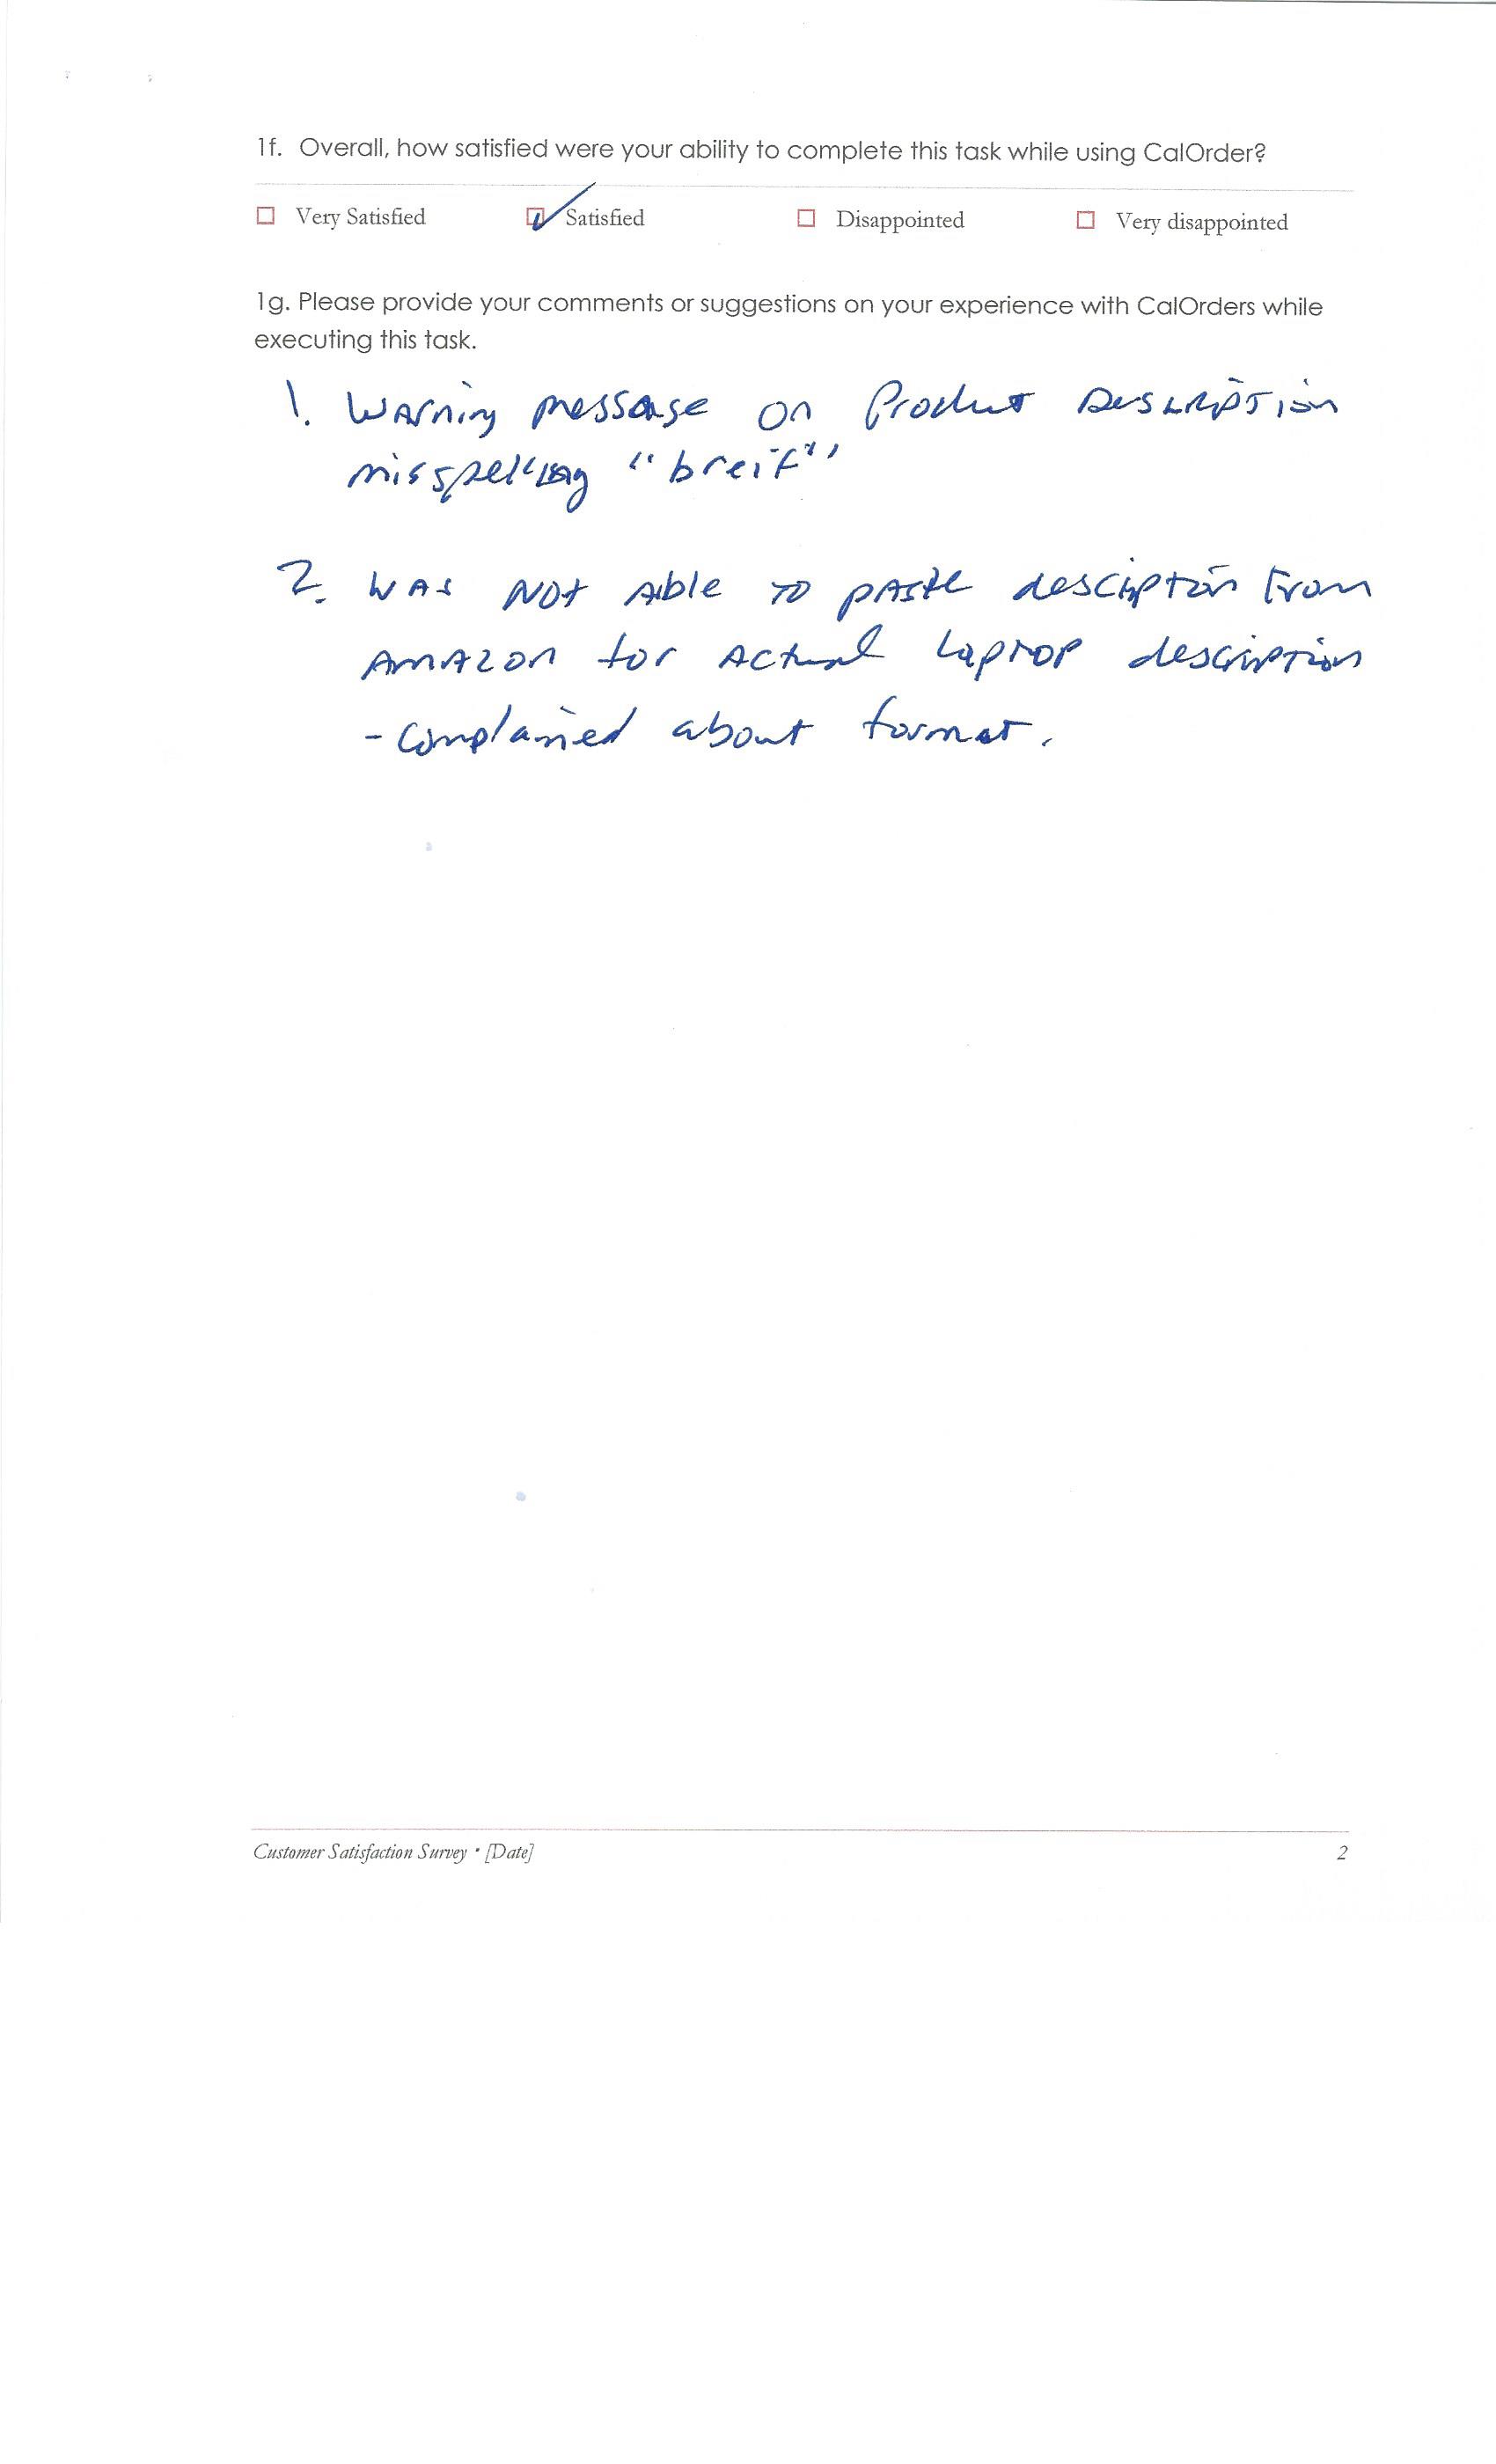 1f. Overall, how satisfied were your ability to complete this task while using CalOrder?
☐ Very Satisfied ☑ Satisfied ☐ Disappointed ☐ Very disappointed
1g. Please provide your comments or suggestions on your experience with CalOrders while
executing this task.
1. Warning message on Product Description
misspelling "breif"
2. WAS NOt Able TO pASte desciption From
AmAzon for Actual Laptop description
- Complained about format.
Customer Satisfaction Survey • [Date] 2